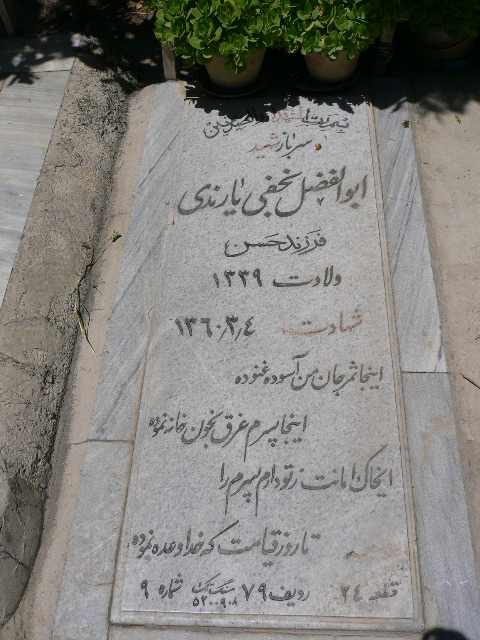 سرباز شهید
ابوالفضل نجفی یارندی
فرزند حسن
ولادت ۱۳۳۹
شهادت ۱۳۶۰/۳/۴
اینجا ثمر جان من آسوده غنوده
اینجا پسرم غرق بخون خانه نموده
ایخاک امانت ز تو دارم پسرم را
تا روز قیامت که خدا وعده نموده
قطعه ۲۴ ردیف ۷۹ شماره ۹